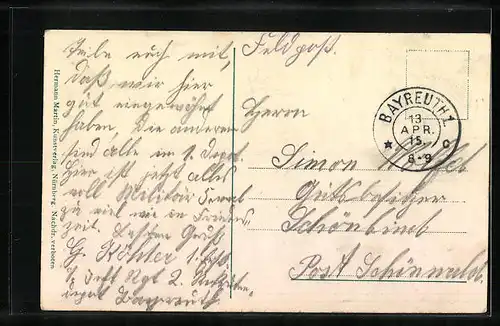 Teile euch mit,
daß wir hier
gut eingewöhnt
haben, die anderen
sind alle im 1. Depot.
Hier ist jetzt alles
voll Militär
zu viel wie in Friedens-
zeit. Besten Gruß
G. Köhler
7. Inft. Rgt 2. Rekruten-
depot Bayreuth
Hermann Martin, Kunstverlag, Nürnberg. Nachdr. verboten
Feldpost.
BAYREUTH 1.
13
APR.
15
8-9
* c
Herrn
Simon
Gutsbesitzer
Schönbind
Post Schönwald.